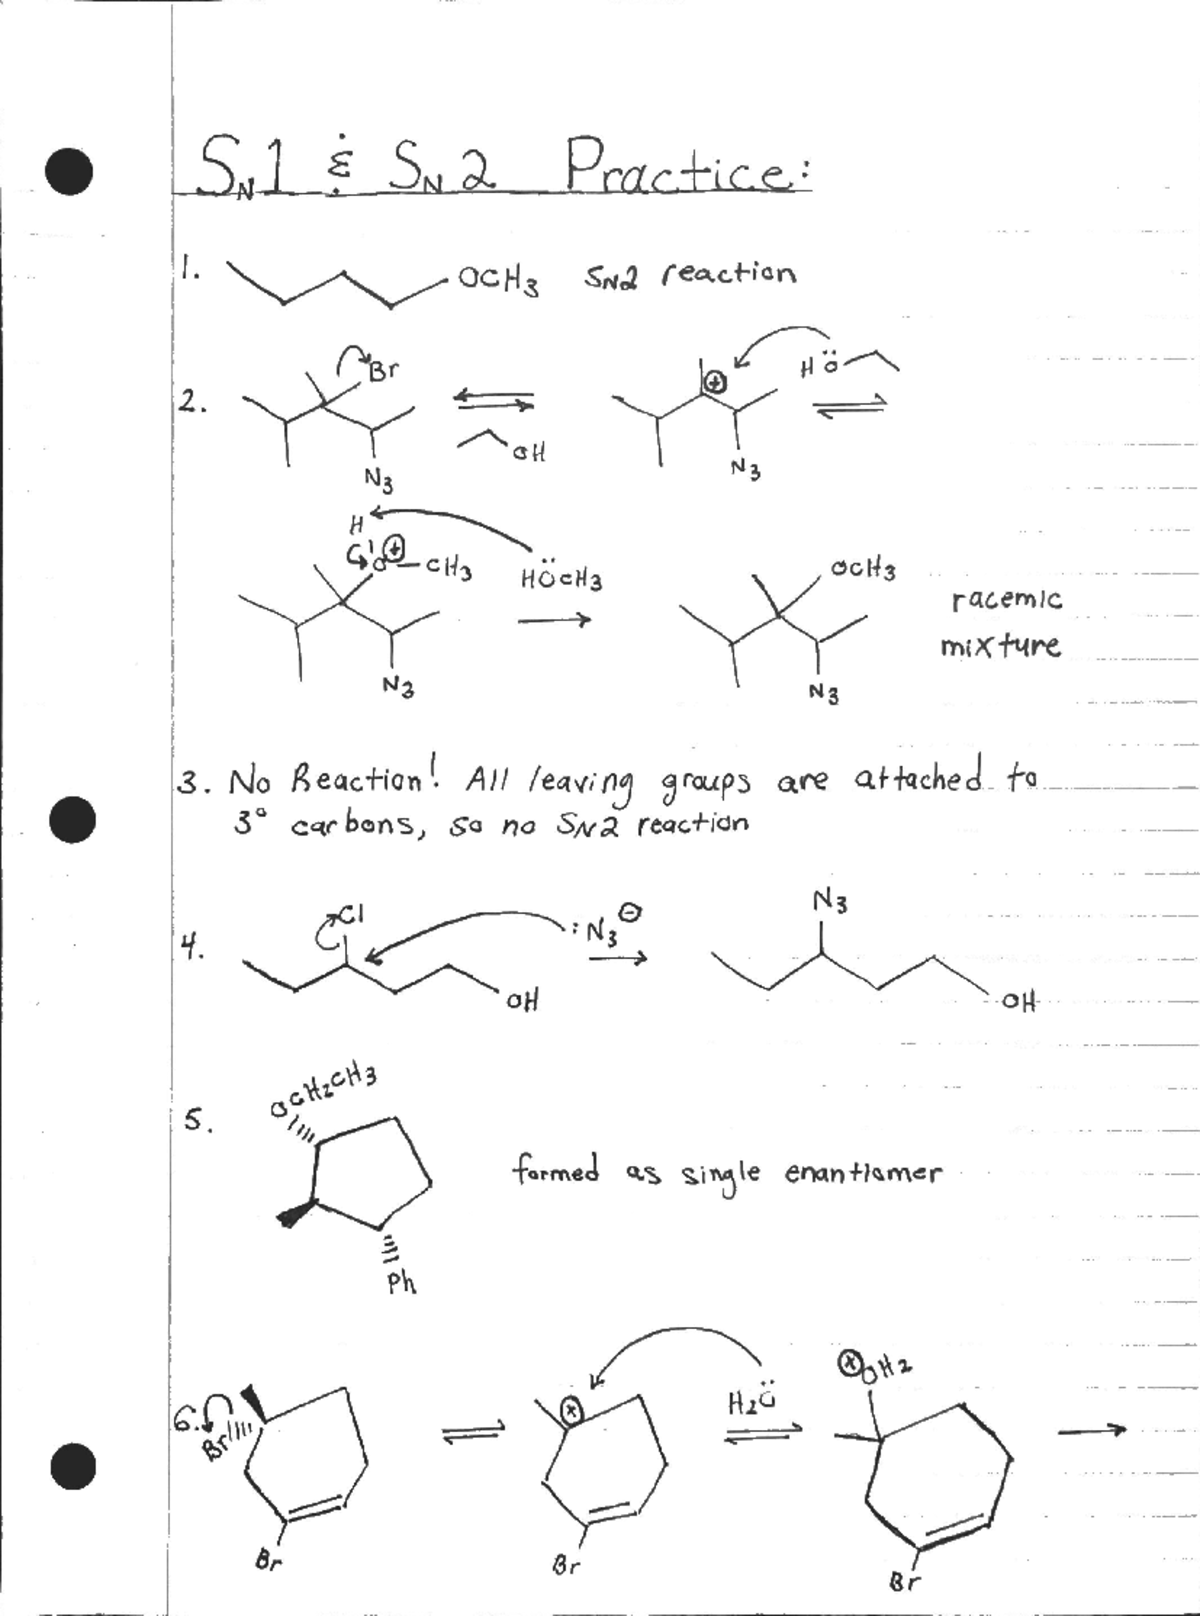 SN1 & SN2 Practice:
1. OCH3 SN2 reaction
Br
HÖ
2.
OH
N3
N3
H
O⊕—CH3
HÖCH3
OCH3
racemic
mixture
N3
N3
3. No Reaction! All leaving groups are attached to
3° carbons, so no SN2 reaction
N3
Cl
:N3⊖
4.
OH
OH
OCH2CH3
5.
formed as single enantiomer
Ph
⊕OH2
H2Ö
6.
Br
⊕
Br
Br
Br